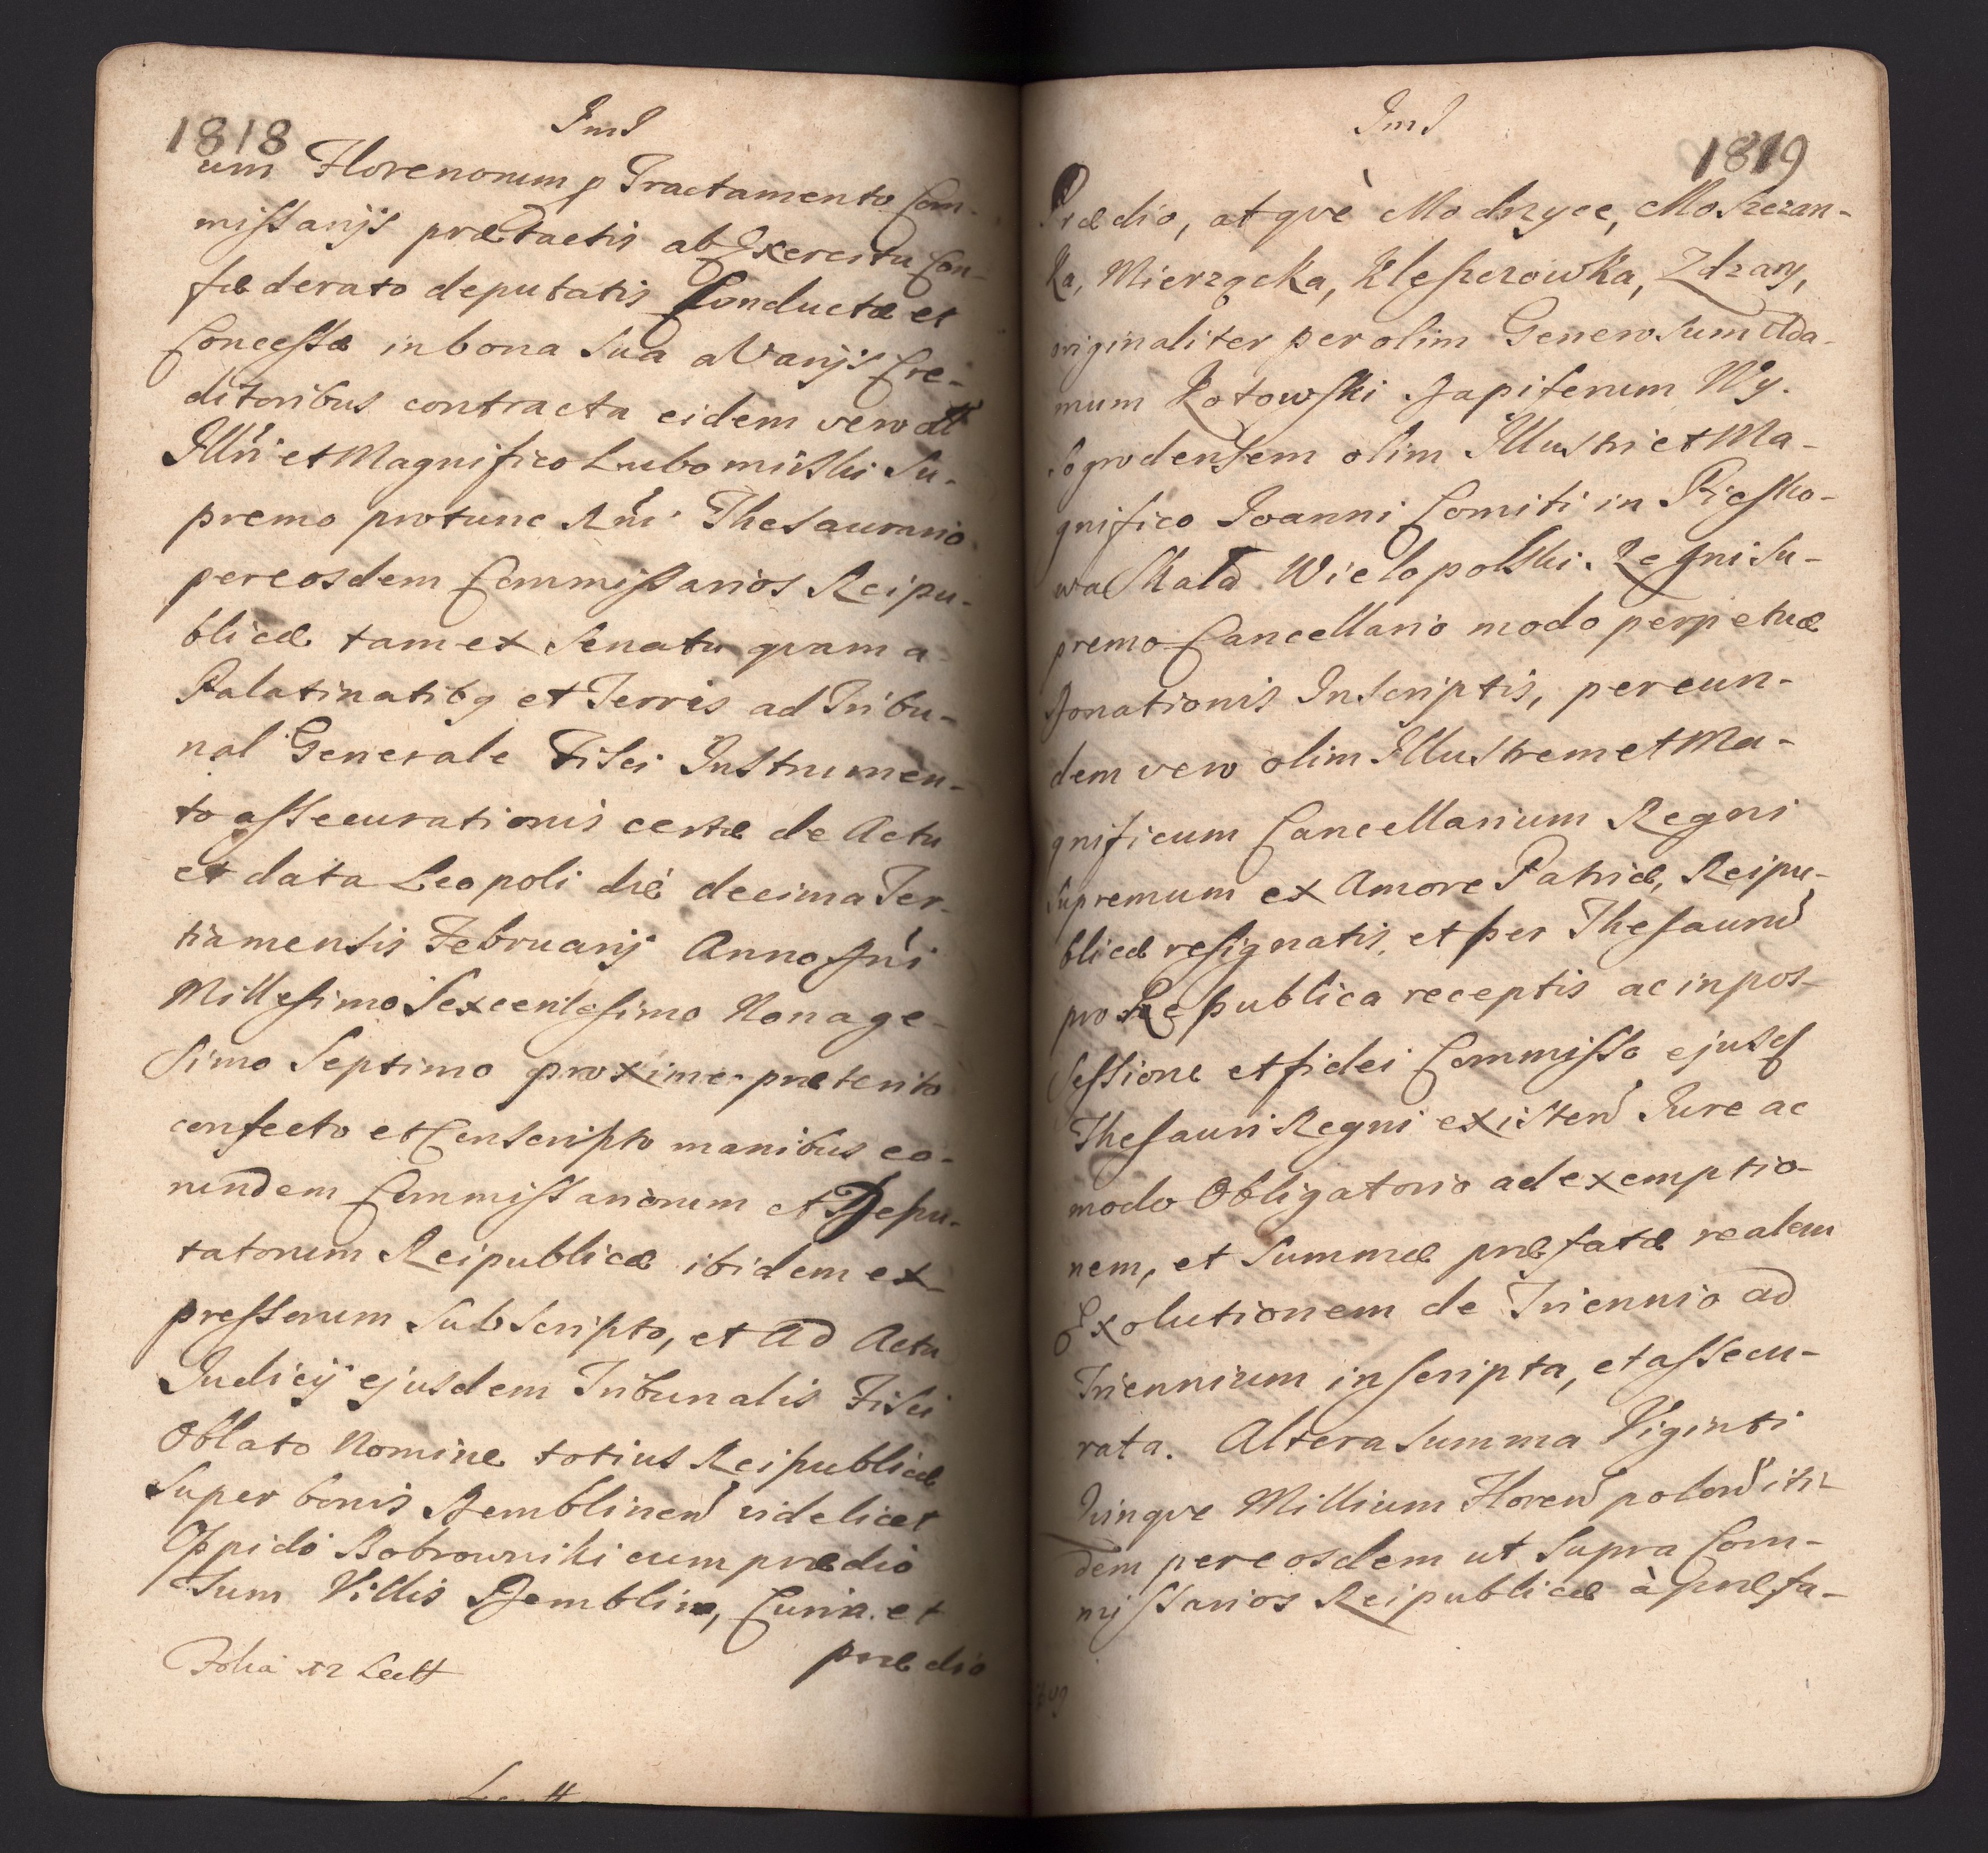 1818
Jnd
um Florenorum p Tractamento Com-
missarijs prætactis ab Exercitu Con-
fæderato deputatis Conductæ et
Concessæ in bona sua a Varijs Cre-
ditoribus contracta eidem vero
Illri et Magnifico Lubomirski Su-
premo protunc Rni Thesaurario
per eosdem Commissarios Reipu-
blicæ tam ex Senatu quam a
Palatinatibq et Terris ad Tribu-
nal Generale Fisci Instrumen-
to assecurationis certæ de Actu
et data Leopoli die decima Ter-
tia mensis Februarij Anno Dni
Millesimo Sexcentesimo Nonage-
simo Septimo proxime præterito
confecto et Conscripto manibus eo-
rundem Commissariorum et Depu-
tatorum Reipublicæ ibidem ex-
pressorum subscripto, et ad Acta
Judicij ejusdem Tribunalis Fisci
Oblato Nomine totius Reipublicæ
super bonis Demblinen videlicet
Oppido Bobrowniki cum prædio
tum Villis Demblin, Curia et
prædio
Folia 12 Lectt
1819
Jnd
Prædio, atqvè Modrzyce, Moszczan-
ka, Mierzącka, Kleszczowka, Zdzary,
originaliter per olim Generosum Ada-
mum Kotowski Dapiferum Wy-
sogrodensem olim Illustri et Ma-
gnifico Joanni Comiti in Piesko-
wa Skała Wielopolski Regni Su-
premo Cancellario modo perpetuæ
Donationis Inscriptis, per eun-
dem vero olim Illustrem et Ma-
gnificum Cancellarium Regni
Supremum ex Amore Patriæ, Reipu-
blicæ resignatis, et per Thesaurū
pro Republica receptis ac in pos-
sessione et fidei Commisso ejusd
Thesauri Regni existen Jure ac
modo Obligatorio ad exemptio-
nem, et Summæ præfatæ realem
Exolutionem de Triennio ad
Triennium inscripta, et assecu-
rata. Altera Summa Viginti
Quinqve Millium Floren polon iti-
dem per eosdem ut supra Com-
missarios Reipublicæ à præfa-